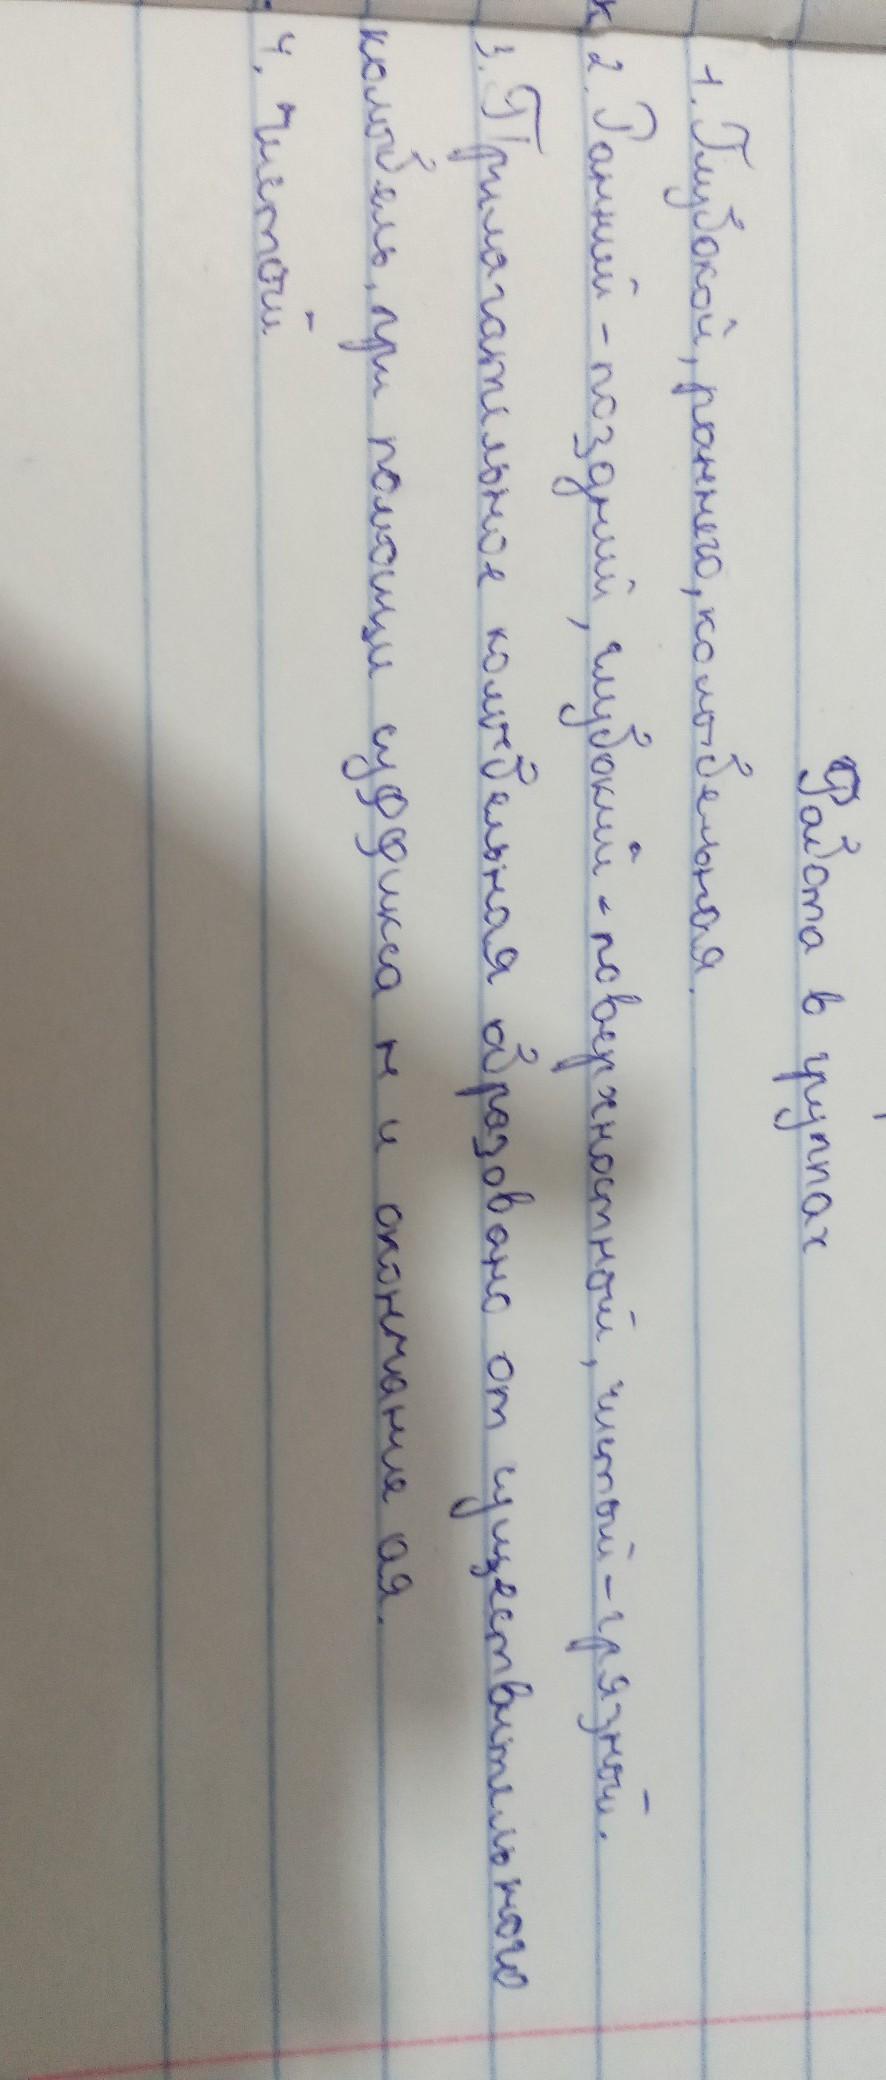 Работа в группах
1. Глубокой, раннего, колыбельная.
2. Ранний - поздний, глубокий - поверхностный, чистый - грязный.
3. Прилагательное колыбельная образовано от существительного
колыбель, при помощи суффикса н и окончание ая.
4. Чистой